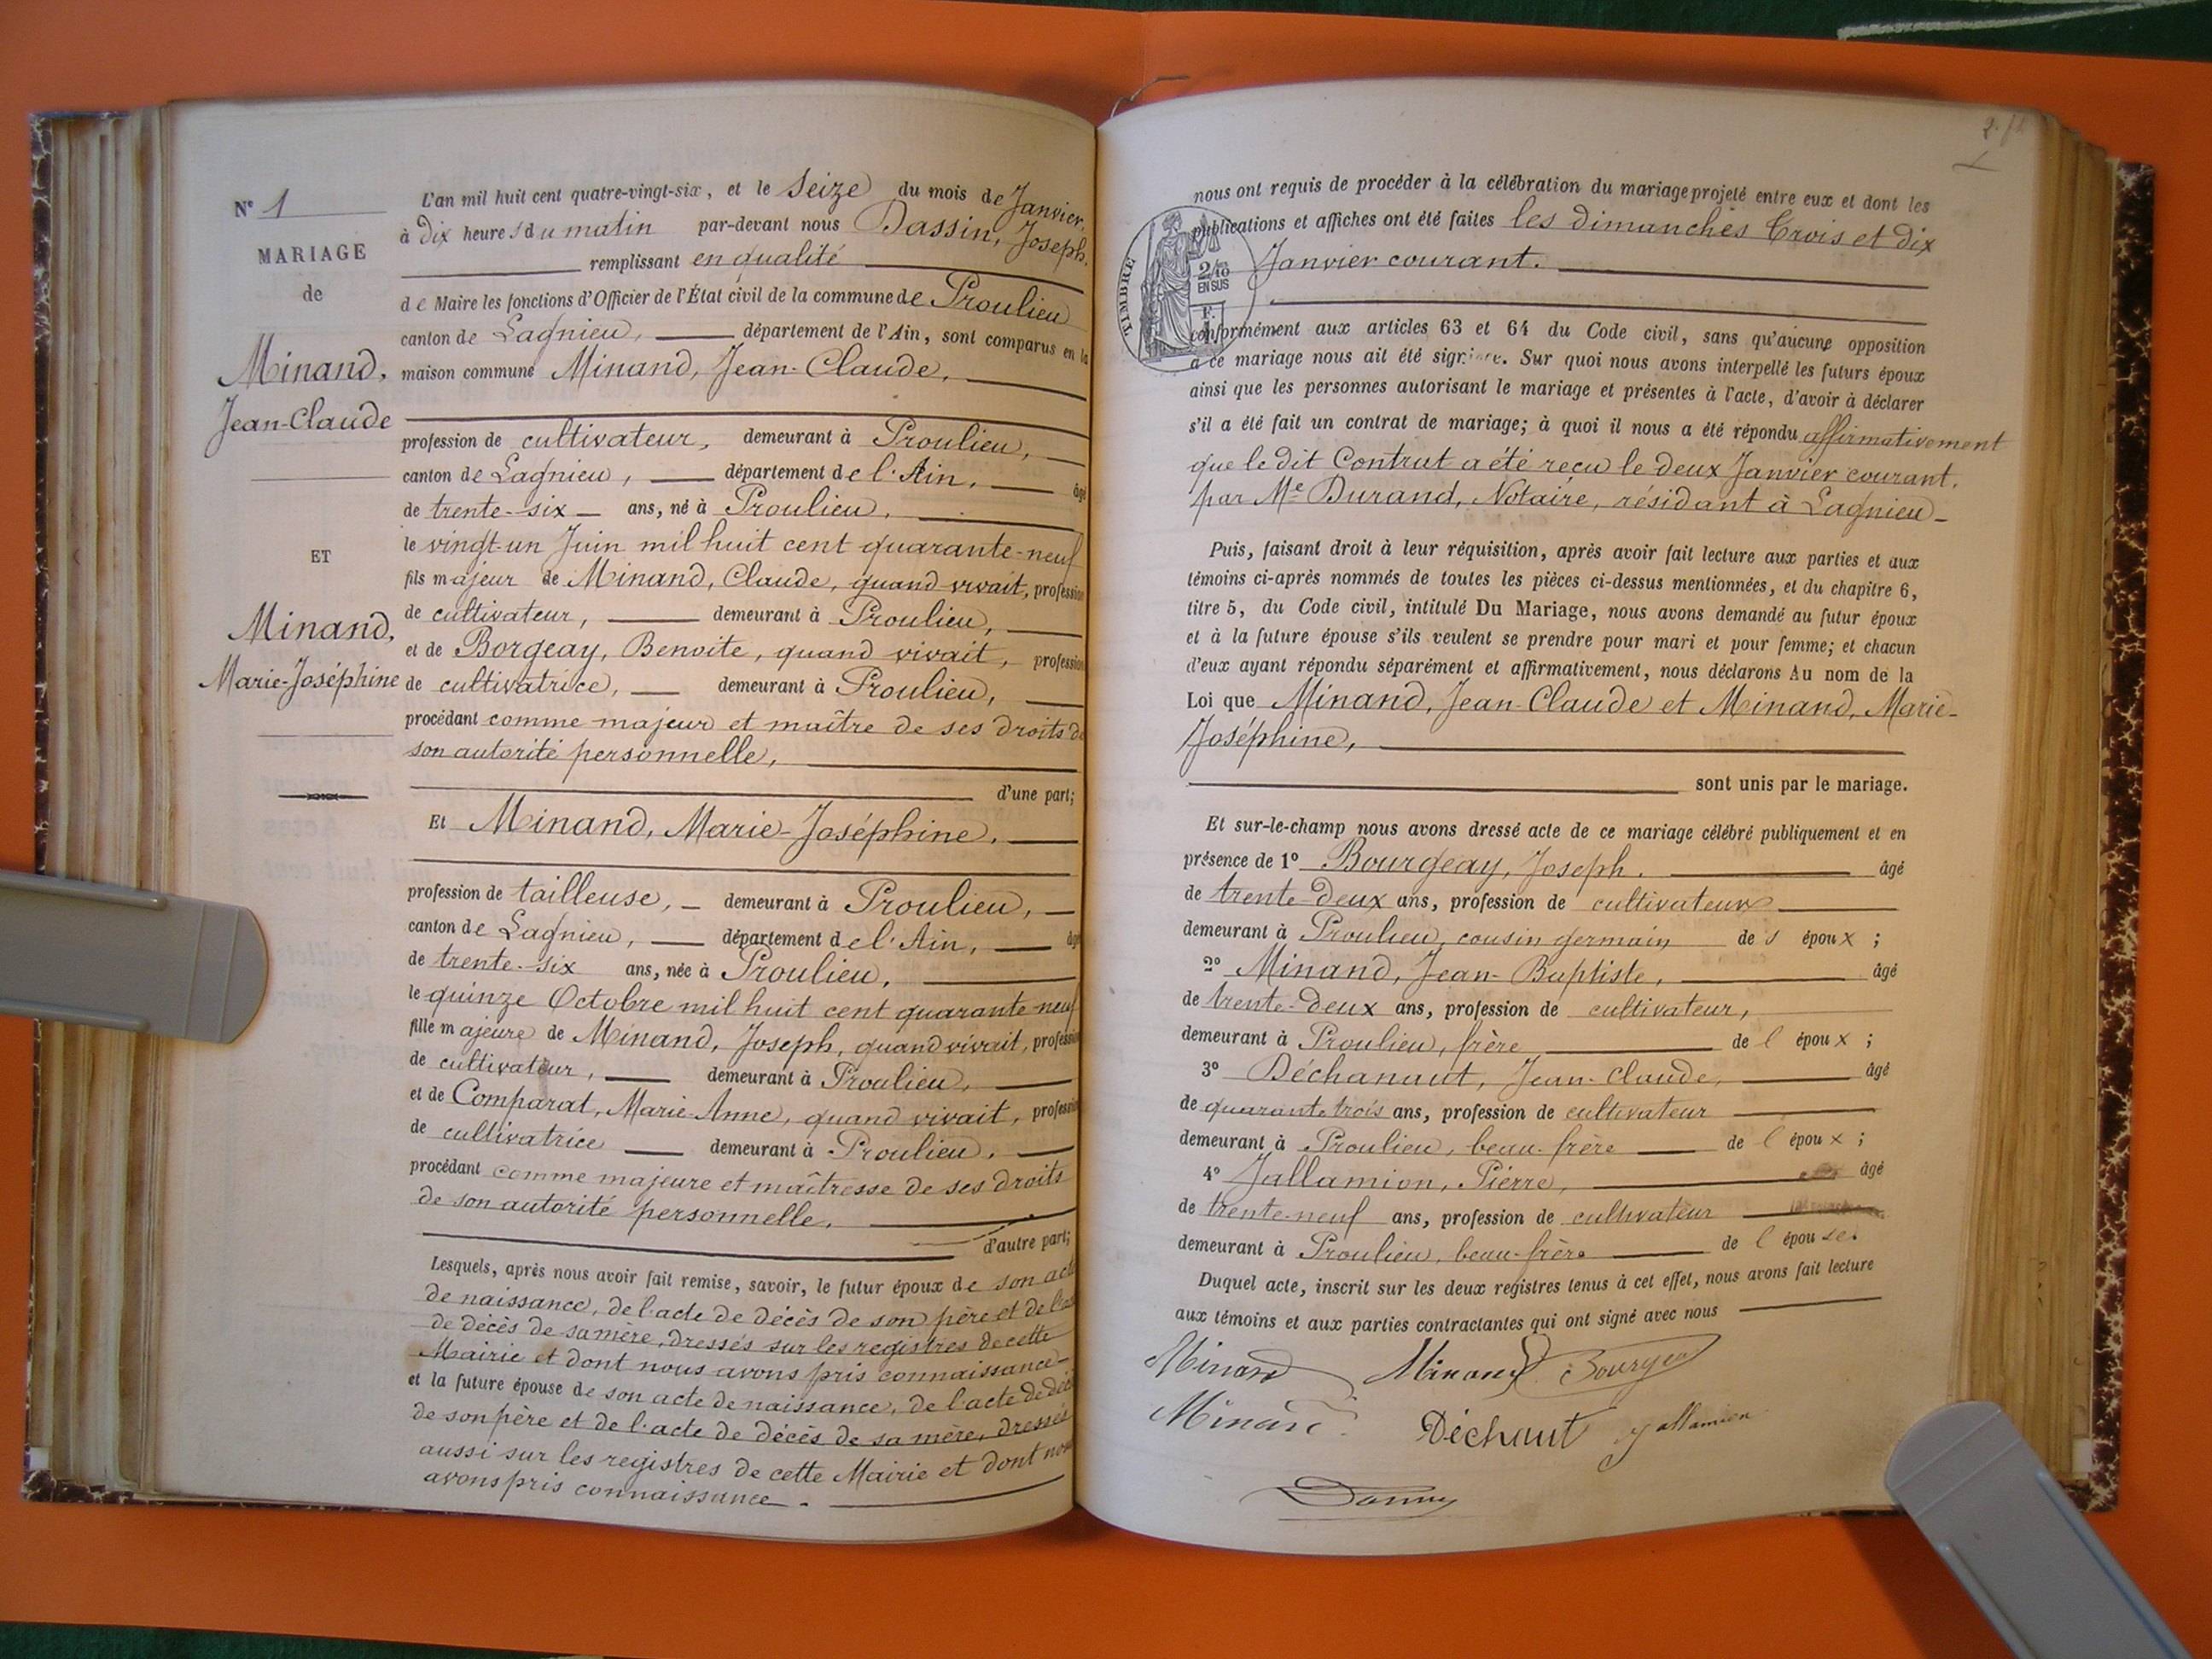 N° 1
MARIAGE
de
Minand,
Jean-Claude
ET
Minand,
Marie-Joséphine
L'an mil huit cent quatre-vingt-six, et le Seize du mois de Janvier,
à dix heures du matin par-devant nous Dassin, Joseph.
remplissant en qualité
de Maire les fonctions d'Officier de l'État civil de la commune de Proulieu
canton de Lagnieu, département de l'Ain, sont comparus en la
maison commune Minand, Jean-Claude,
profession de cultivateur, demeurant à Proulieu,
canton de Lagnieu, département de l'Ain, âgé
de trente-six ans, né à Proulieu,
le vingt-un Juin mil huit cent quarante-neuf
fils majeur de Minand, Claude, quand vivait, profession
de cultivateur, demeurant à Proulieu,
et de Borgeay, Benoite, quand vivait, profession
de cultivatrice, demeurant à Proulieu,
procédant comme majeur et maître de ses droits de
son autorité personnelle,
d'une part;
Et Minand, Marie-Joséphine,
profession de tailleuse, demeurant à Proulieu,
canton de Lagnieu, département de l'Ain, âgé
de trente-six ans, née à Proulieu,
le quinze Octobre mil huit cent quarante-neuf
fille majeure de Minand, Joseph, quand vivait, profession
de cultivateur, demeurant à Proulieu,
et de Comparat, Marie-Anne, quand vivait, profession
de cultivatrice demeurant à Proulieu,
procédant comme majeure et maîtresse de ses droits
de son autorité personnelle,
d'autre part;
Lesquels, après nous avoir fait remise, savoir, le futur époux de son acte
de naissance, de l'acte de décès de son père et de l'acte
de décès de sa mère, dressés sur les registres de cette
Mairie et dont nous avons pris connaissance
et la future épouse de son acte de naissance, de l'acte de décès
de son père et de l'acte de décès de sa mère, dressés
aussi sur les registres de cette Mairie et dont nous
avons pris connaissance.
nous ont requis de procéder à la célébration du mariage projeté entre eux et dont les
publications et affiches ont été faites les dimanches Trois et dix
Janvier courant.
TIMBRE
2/10
EN SUS
conformément aux articles 63 et 64 du Code civil, sans qu'aucune opposition
à ce mariage nous ait été signifiée. Sur quoi nous avons interpellé les futurs époux
ainsi que les personnes autorisant le mariage et présentes à l'acte, d'avoir à déclarer
s'il a été fait un contrat de mariage; à quoi il nous a été répondu affirmativement
que le dit Contrat a été reçu le deux Janvier courant,
par Me Durand, Notaire, résidant à Lagnieu
Puis, faisant droit à leur réquisition, après avoir fait lecture aux parties et aux
témoins ci-après nommés de toutes les pièces ci-dessus mentionnées, et du chapitre 6,
titre 5, du Code civil, intitulé Du Mariage, nous avons demandé au futur époux
et à la future épouse s'ils veulent se prendre pour mari et pour femme; et chacun
d'eux ayant répondu séparément et affirmativement, nous déclarons Au nom de la
Loi que Minand, Jean-Claude et Minand, Marie-
Joséphine,
sont unis par le mariage.
Et sur-le-champ nous avons dressé acte de ce mariage célébré publiquement et en
présence de 1° Bourgeay, Joseph. âgé
de trente-deux ans, profession de cultivateur
demeurant à Proulieu, cousin germain des époux;
2° Minand, Jean-Baptiste, âgé
de trente-deux ans, profession de cultivateur,
demeurant à Proulieu, frère de l époux;
3° Déchanaut, Jean-Claude, âgé
de quarante trois ans, profession de cultivateur
demeurant à Proulieu, beau-frère de l époux;
4° Jallamion, Pierre, âgé
de trente-neuf ans, profession de cultivateur
demeurant à Proulieu, beau-frère de l épouse.
Duquel acte, inscrit sur les deux registres tenus à cet effet, nous avons fait lecture
aux témoins et aux parties contractantes qui ont signé avec nous
Minand Minand Bourgeay
Minand Déchaut Jallamion